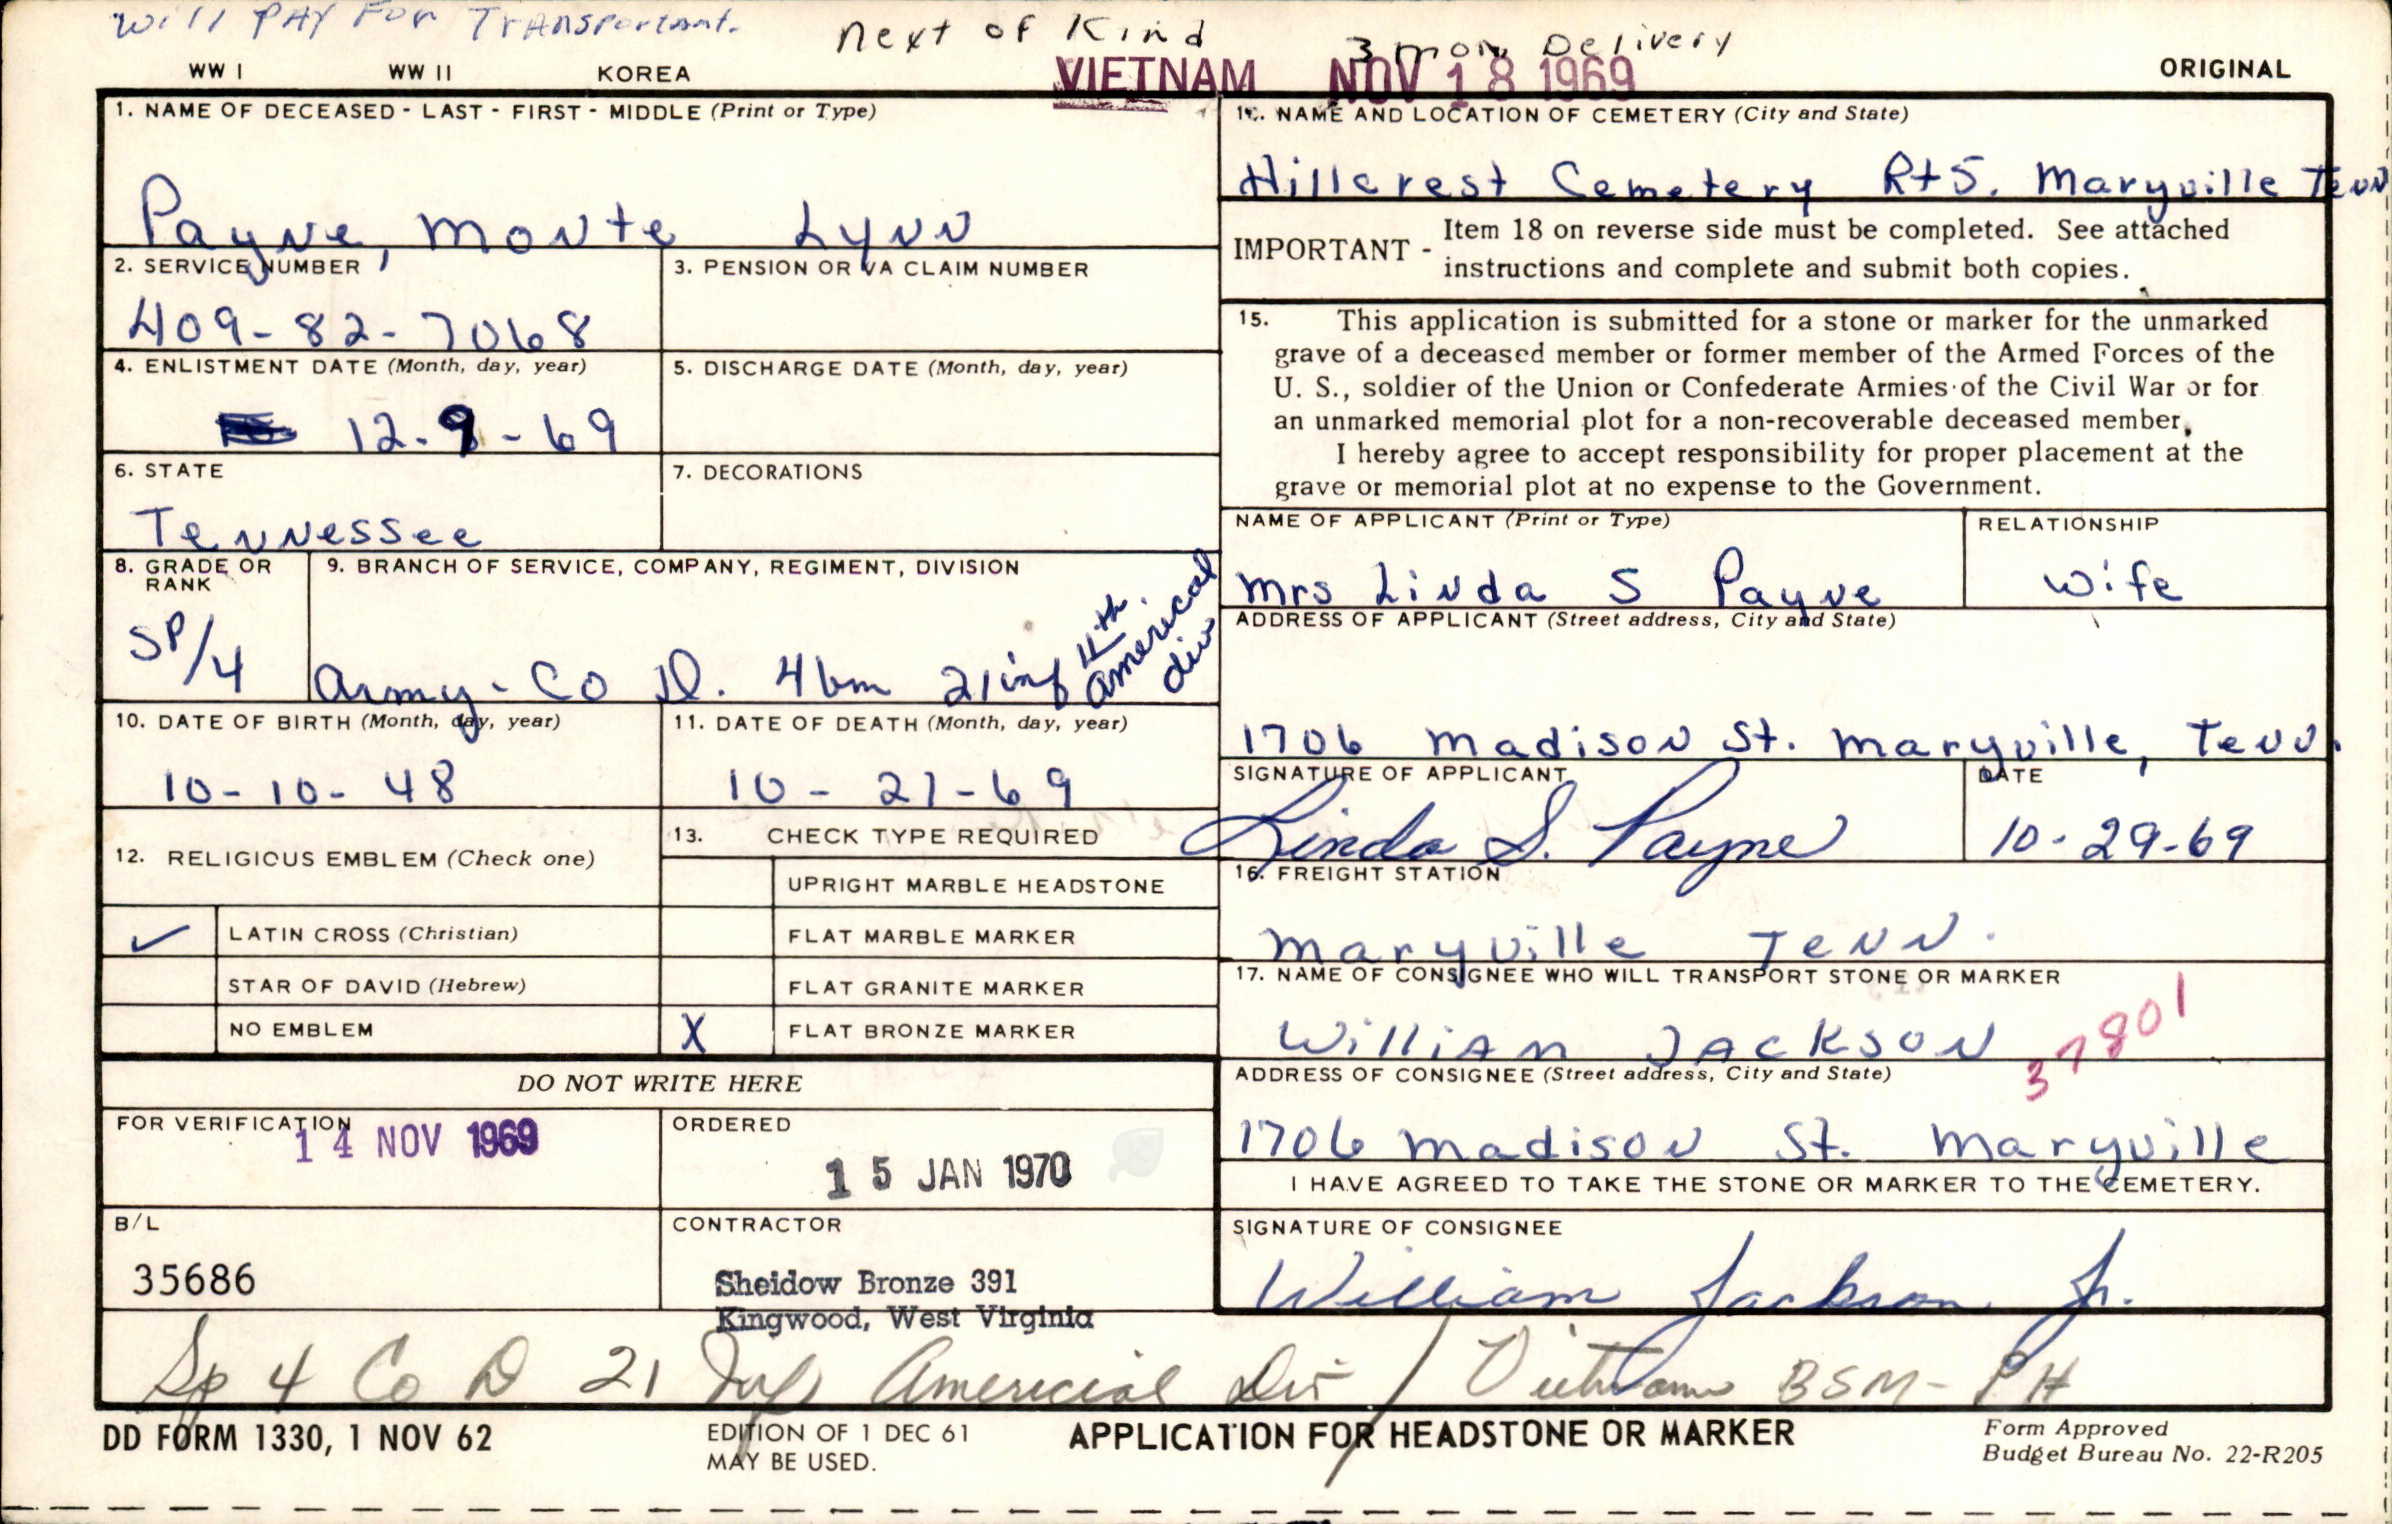 Will PAY For Transportant.
Next of Kind
3 mon Delivery
WW I WW II KOREA VIETNAM NOV 18 1969 ORIGINAL
1. NAME OF DECEASED - LAST - FIRST - MIDDLE (Print or Type)
Payne, Monte Lynn
2. SERVICE NUMBER
409-82-7068
3. PENSION OR VA CLAIM NUMBER
4. ENLISTMENT DATE (Month, day, year)
12-9-69
5. DISCHARGE DATE (Month, day, year)
6. STATE
Tennessee
7. DECORATIONS
8. GRADE OR
RANK
SP/4
9. BRANCH OF SERVICE, COMPANY, REGIMENT, DIVISION
Army - Co D. 4bm 21 inf 11th
Americal
div
10. DATE OF BIRTH (Month, day, year)
10-10-48
11. DATE OF DEATH (Month, day, year)
10-21-69
12. RELIGIOUS EMBLEM (Check one)
✓ LATIN CROSS (Christian)
STAR OF DAVID (Hebrew)
NO EMBLEM
13. CHECK TYPE REQUIRED
UPRIGHT MARBLE HEADSTONE
FLAT MARBLE MARKER
FLAT GRANITE MARKER
X FLAT BRONZE MARKER
DO NOT WRITE HERE
FOR VERIFICATION
14 NOV 1969
ORDERED
15 JAN 1970
B/L
35686
CONTRACTOR
Sheidow Bronze 391
Kingwood, West Virginia
14. NAME AND LOCATION OF CEMETERY (City and State)
Hillcrest Cemetery Rt5. Maryville Tenn
IMPORTANT - Item 18 on reverse side must be completed. See attached
instructions and complete and submit both copies.
15. This application is submitted for a stone or marker for the unmarked
grave of a deceased member or former member of the Armed Forces of the
U. S., soldier of the Union or Confederate Armies of the Civil War or for
an unmarked memorial plot for a non-recoverable deceased member.
I hereby agree to accept responsibility for proper placement at the
grave or memorial plot at no expense to the Government.
NAME OF APPLICANT (Print or Type)
Mrs Linda S Payne
RELATIONSHIP
Wife
ADDRESS OF APPLICANT (Street address, City and State)
1706 Madison St. Maryville, Tenn.
SIGNATURE OF APPLICANT
Linda S. Payne
DATE
10-29-69
16. FREIGHT STATION
Maryville Tenn.
17. NAME OF CONSIGNEE WHO WILL TRANSPORT STONE OR MARKER
Willian Jackson
37801
ADDRESS OF CONSIGNEE (Street address, City and State)
1706 Madison St. Maryville
I HAVE AGREED TO TAKE THE STONE OR MARKER TO THE CEMETERY.
SIGNATURE OF CONSIGNEE
William Jackson Jr.
Sp 4 Co D 21 Inf Americial Div / Vietnam BSM - PH
DD FORM 1330, 1 NOV 62
EDITION OF 1 DEC 61
MAY BE USED.
APPLICATION FOR HEADSTONE OR MARKER
Form Approved
Budget Bureau No. 22-R205